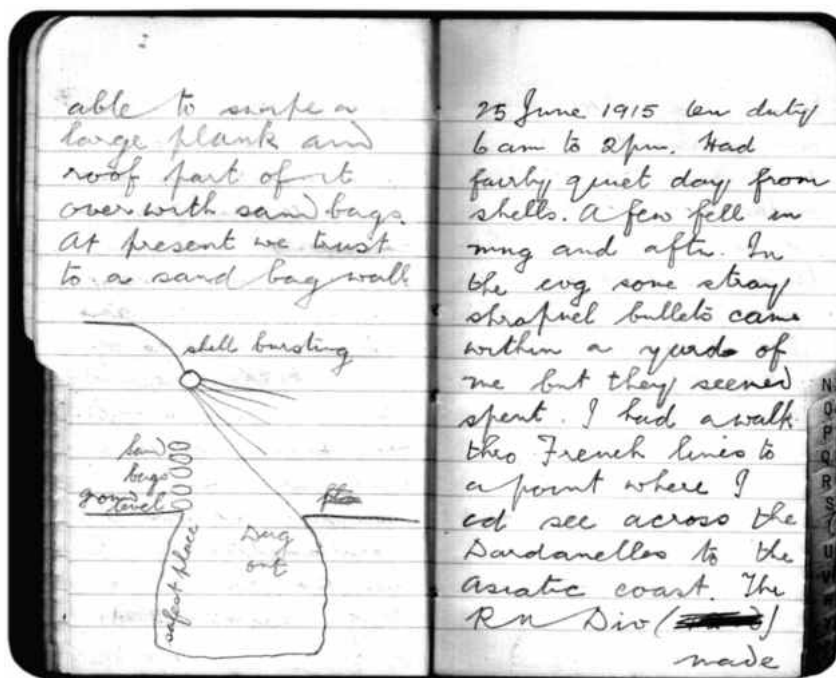 able to swipe a
large plank and
roof part of it
over with sand bags.
At present we trust
to a sand bag wall
shell bursting
sand
bags
ground
level
safest place
Dug
out
25 June 1915 On duty
6 am to 2 pm. Had
fairly quiet day from
shells. A few fell in
mng and aftn. In
the evg some stray
shrapnel bullets came
within a yard of
me but they seemed
spent. I had a walk
thro French lines to
a point where I
cd see across the
Dardanelles to the
Asiatic coast. The
RN Div (
made
N
O
P
Q
R
S
T
U
V
W